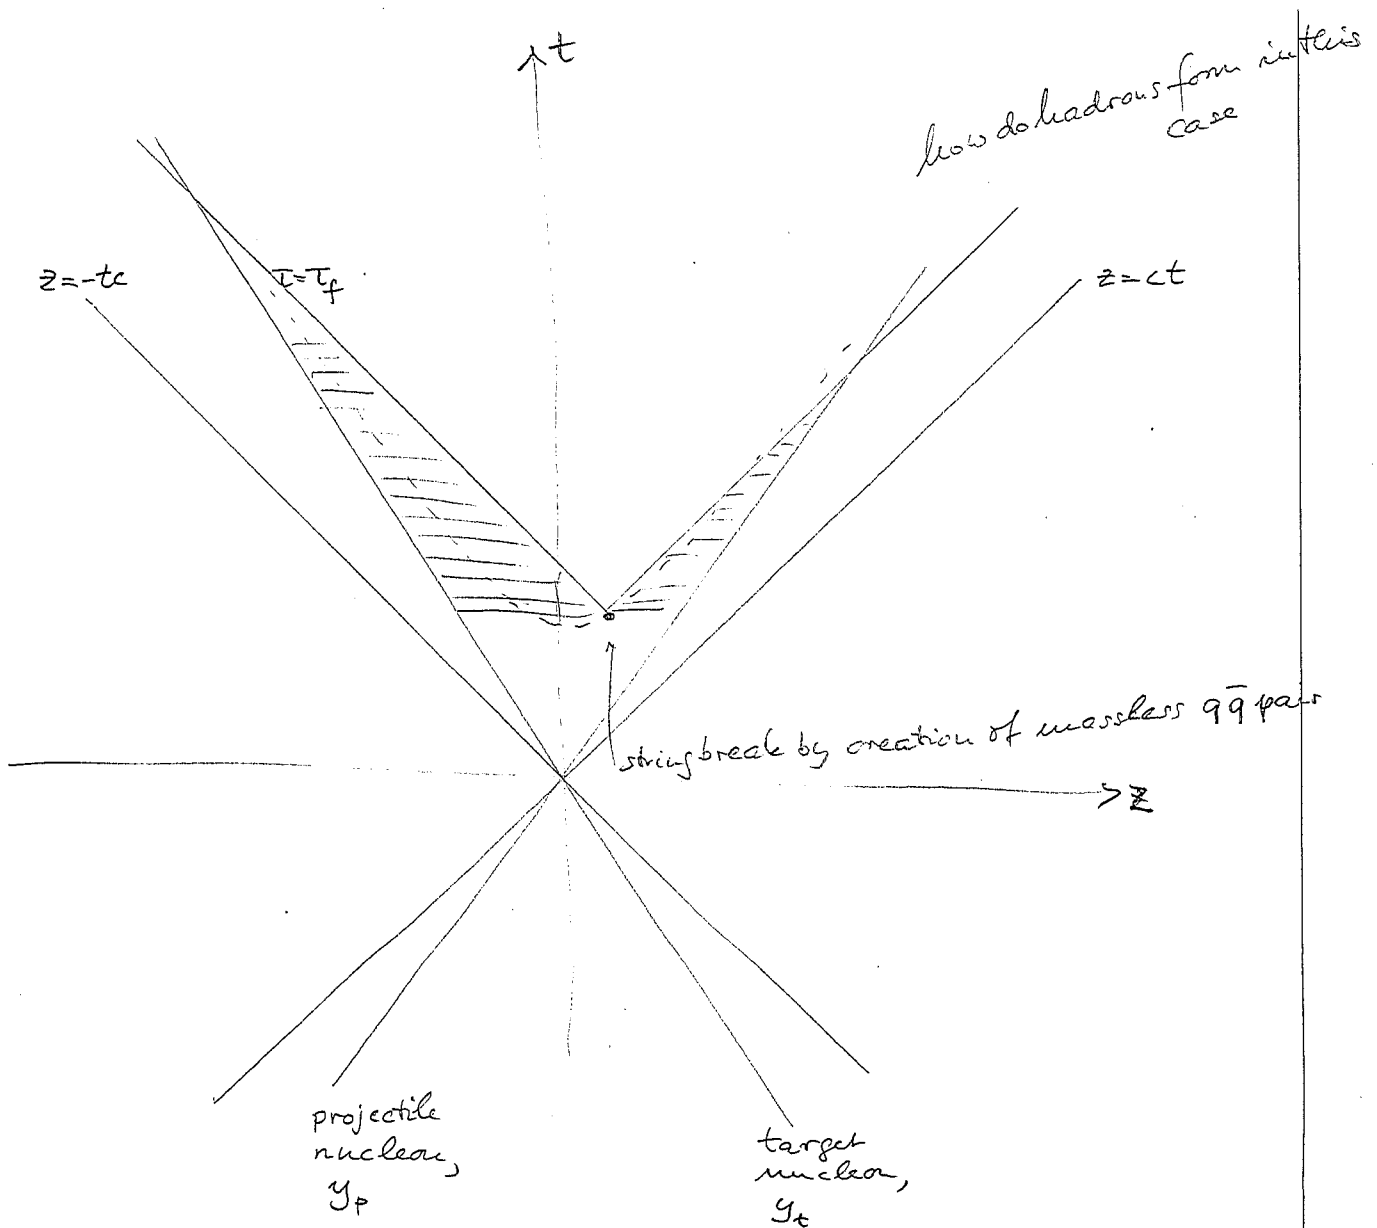 t
how do hadrons form in this
case
z=-tc
τ=τ_f
z=ct
string break by creation of massless q q̄ pair
z
projectile
nucleon,
y_p
target
nucleon,
y_t